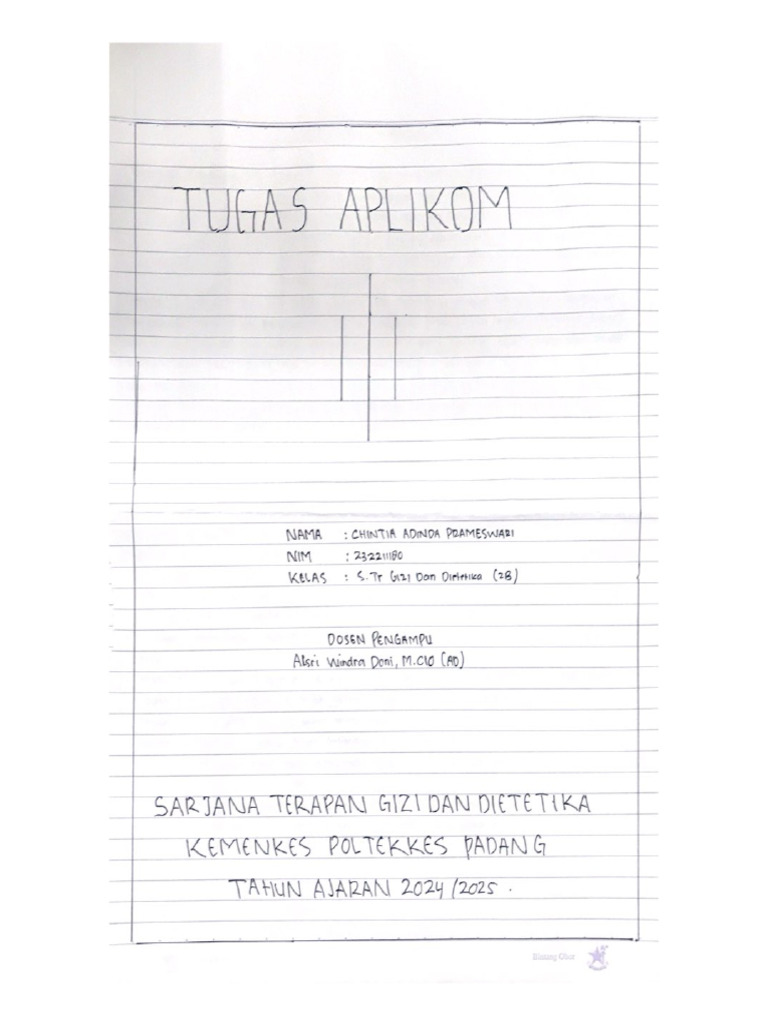 TUGAS APLIKOM
NAMA : CHINTIA ADINDA PRAMESWARI
NIM : 232211180
KELAS : S.Tr Gizi Dan Dietetika (2B)
DOSEN PENGAMPU
Alsri Windra Doni, M.CIO (AD)
SARJANA TERAPAN GIZI DAN DIETETIKA
KEMENKES POLTEKKES PADANG
TAHUN AJARAN 2024/2025.
Bintang Obor